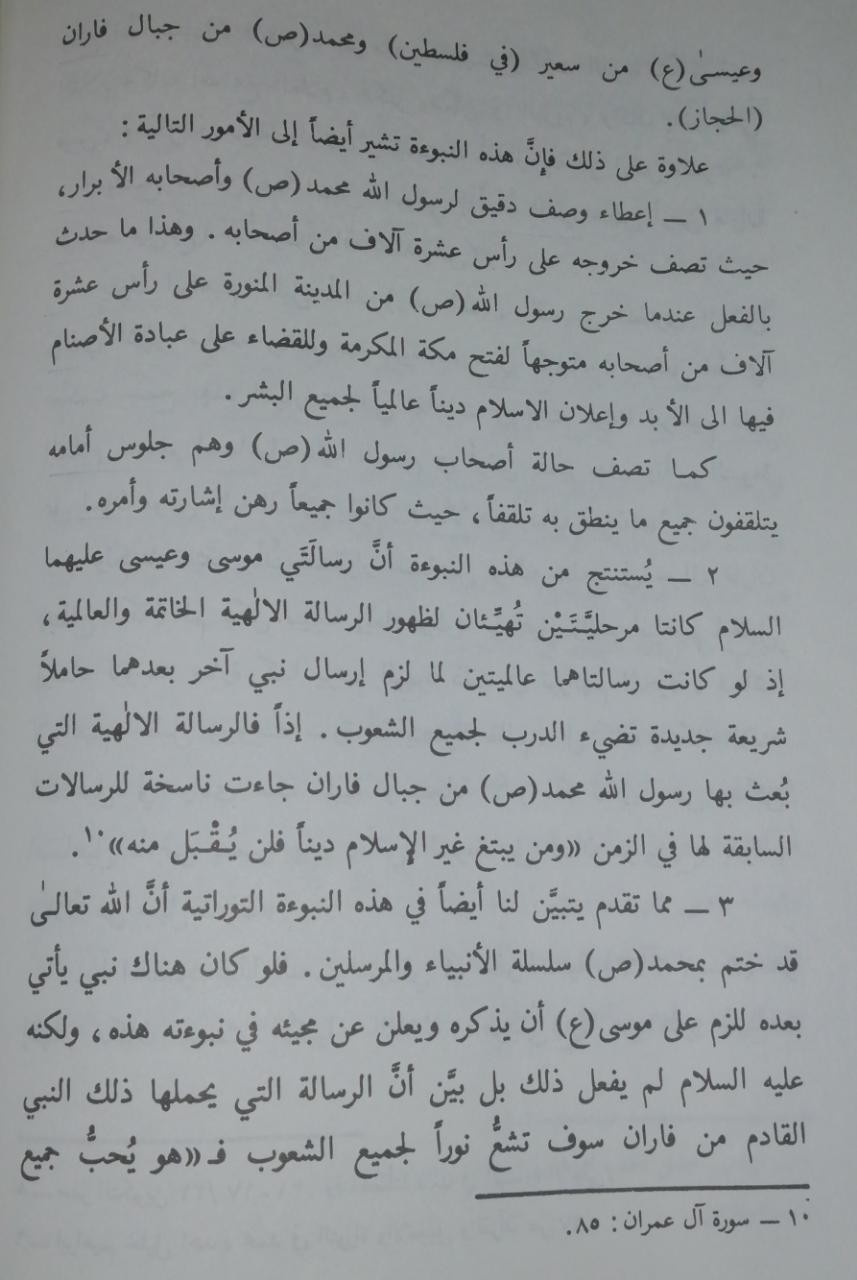 وعيسىٰ(ع) من سعير (في فلسطين) ومحمد(ص) من جبال فاران
(الحجاز).
علاوة على ذلك فإنَّ هذه النبوءة تشير أيضاً إلى الأمور التالية:
١ ــ إعطاء وصف دقيق لرسول الله محمد(ص) وأصحابه الأبرار،
حيث تصف خروجه على رأس عشرة آلاف من أصحابه. وهذا ما حدث
بالفعل عندما خرج رسول الله(ص) من المدينة المنورة على رأس عشرة
آلاف من أصحابه متوجهاً لفتح مكة المكرمة وللقضاء على عبادة الأصنام
فيها الى الأبد وإعلان الاسلام ديناً عالمياً لجميع البشر.
كما تصف حالة أصحاب رسول الله(ص) وهم جلوس أمامه
يتلقفون جميع ما ينطق به تلقفاً، حيث كانوا جميعاً رهن إشارته وأمره.
٢ ــ يُستنتج من هذه النبوءة أنَّ رسالَتَي موسى وعيسى عليهما
السلام كانتا مرحليَّتَيْن تُهيِّئان لظهور الرسالة الالٰهية الخاتمة والعالمية،
إذ لو كانت رسالتاهما عالميتين لما لزم إرسال نبي آخر بعدهما حاملاً
شريعة جديدة تضيء الدرب لجميع الشعوب. إذاً فالرسالة الالٰهية التي
بُعث بها رسول الله محمد(ص) من جبال فاران جاءت ناسخة للرسالات
السابقة لها في الزمن «ومن يبتغ غير الإسلام ديناً فلن يُقْبَل منه»١٠.
٣ ــ مما تقدم يتبيَّن لنا أيضاً في هذه النبوءة التوراتية أنَّ الله تعالىٰ
قد ختم بمحمد(ص) سلسلة الأنبياء والمرسلين. فلو كان هناك نبي يأتي
بعده للزم على موسى(ع) أن يذكره ويعلن عن مجيئه في نبوءته هذه، ولكنه
عليه السلام لم يفعل ذلك بل بيَّن أنَّ الرسالة التي يحملها ذلك النبي
القادم من فاران سوف تشعُّ نوراً لجميع الشعوب فـ«هو يُحبُّ جميع
١٠ ــ سورة آل عمران: ٨٥.